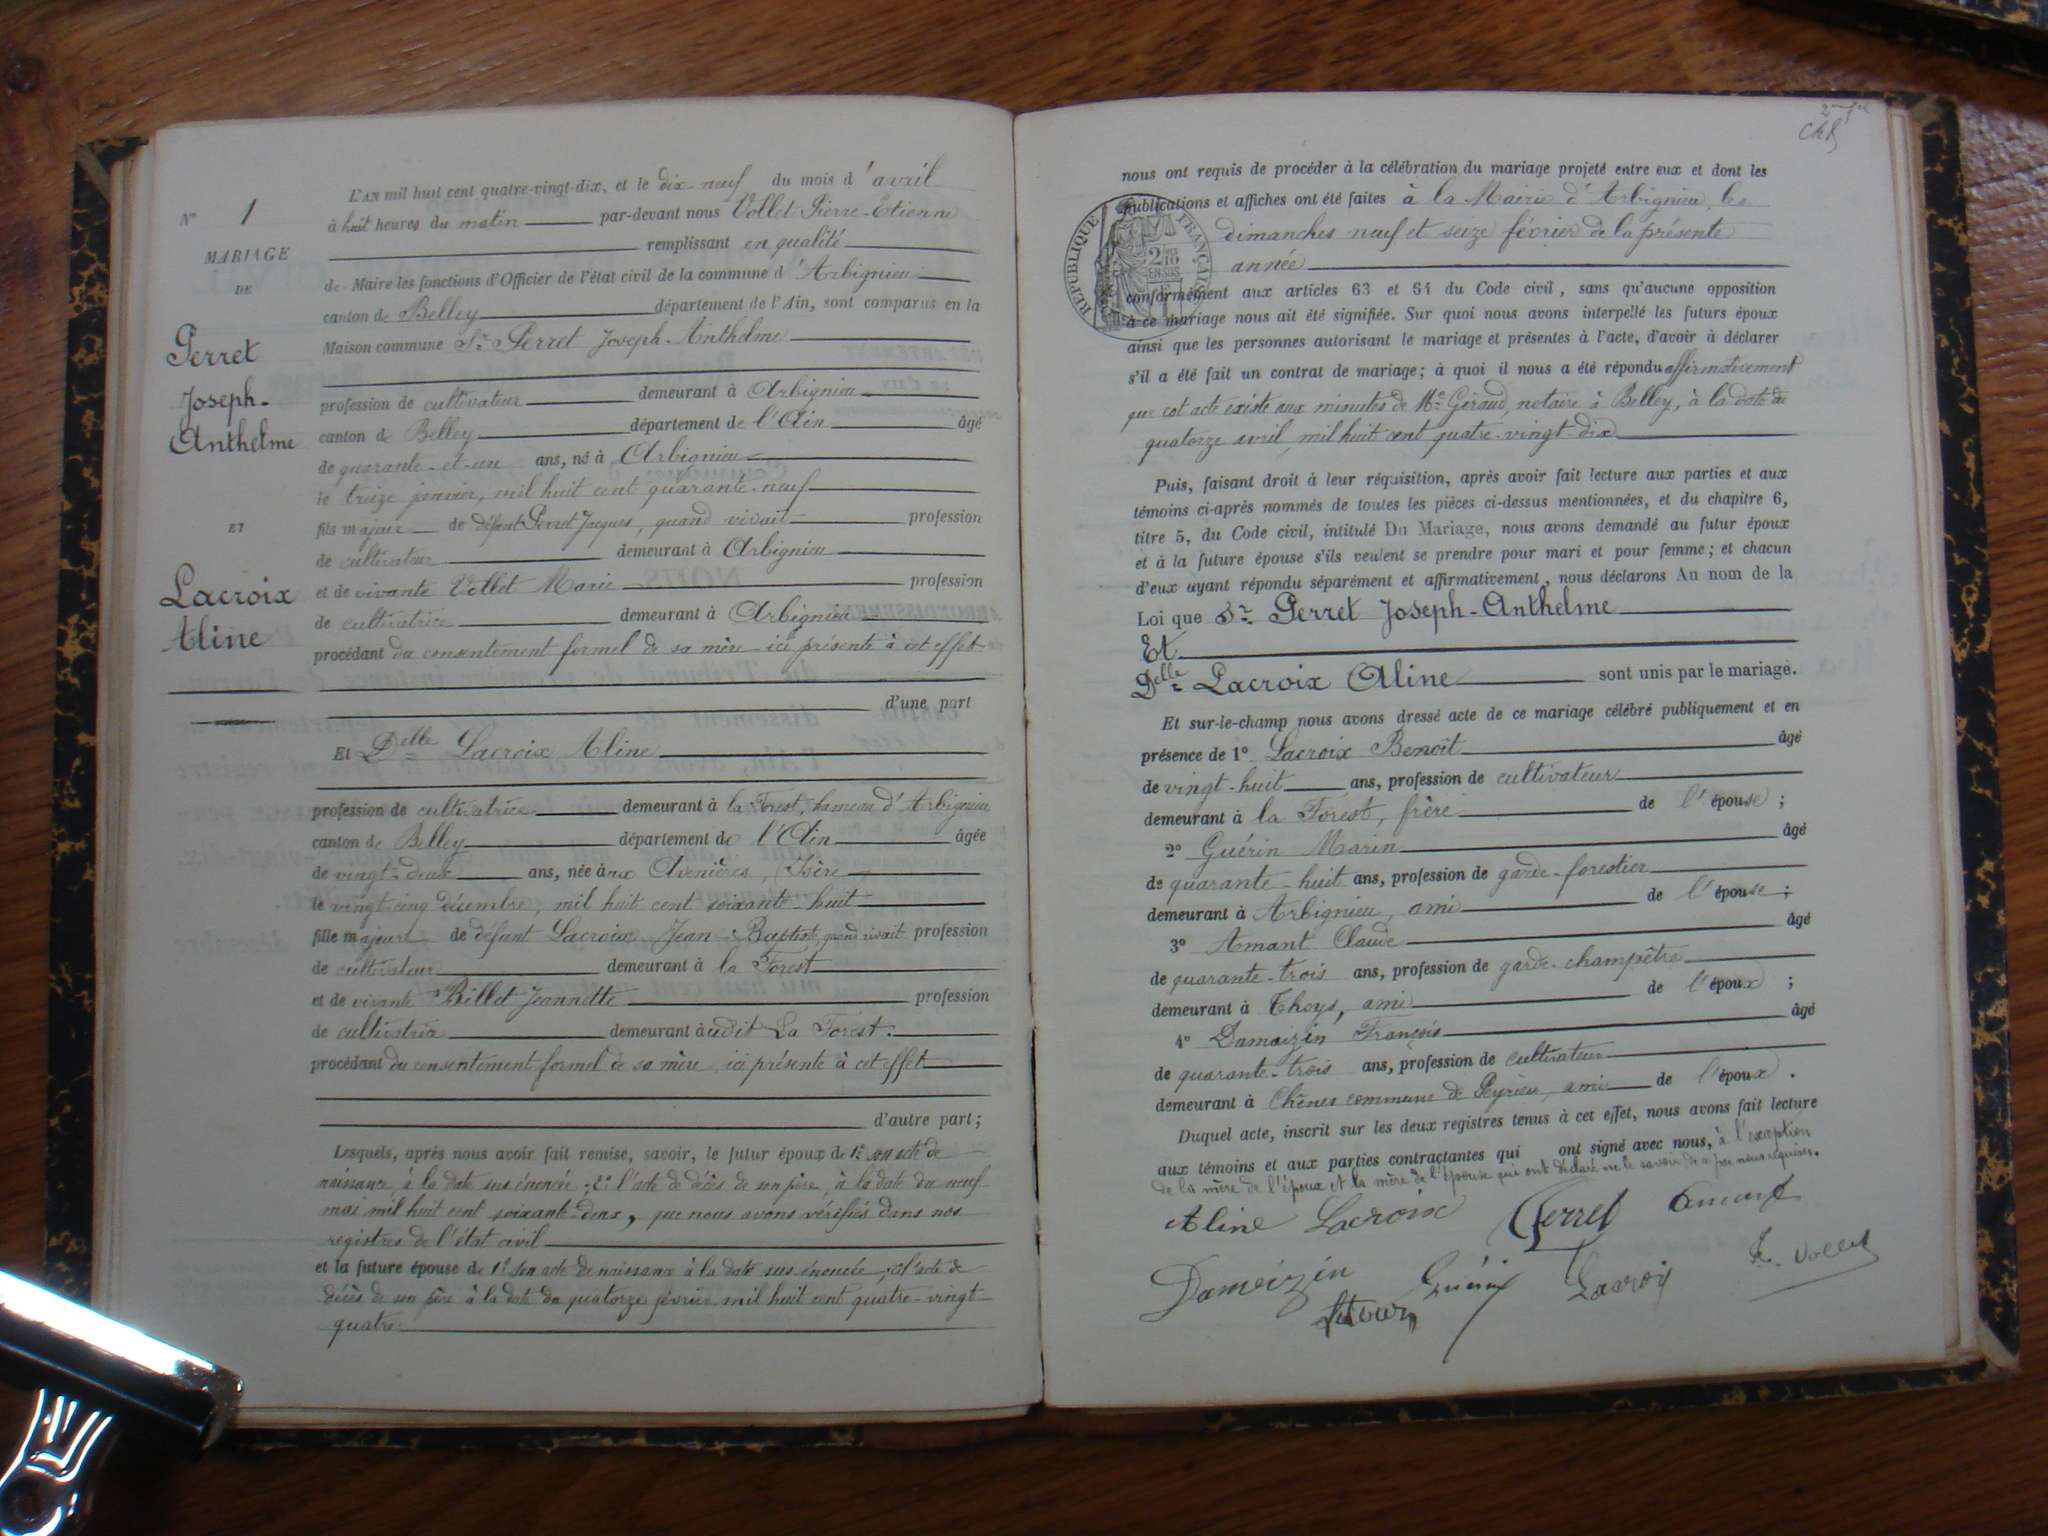 N° 1
MARIAGE
DE
Perret
Joseph-
Anthelme
ET
Lacroix
Aline
L'AN mil huit cent quatre-vingt-dix, et le dix-neuf du mois d'avril
à huit heures du matin par-devant nous Vollet Pierre-Etienne
remplissant en qualité
de Maire les fonctions d'Officier de l'état civil de la commune d'Arbignieu
canton de Belley département de l'Ain, sont comparus en la
Maison commune Sr Perret Joseph-Anthelme
profession de cultivateur demeurant à Arbignieu
canton de Belley département de l'Ain âgé
de quarante-et-un ans, né à Arbignieu
le treize janvier, mil huit cent quarante-neuf
fils majeur de défunt Perret Jacques, quand vivait profession
de cultivateur demeurant à Arbignieu
et de vivante Vollet Marie profession
de cultivatrice demeurant à Arbignieu
procédant du consentement formel de sa mère ici présente à cet effet
d'une part
Et Delle Lacroix Aline
profession de cultivatrice demeurant à la Forest, hameau d'Arbignieu
canton de Belley département de l'Ain âgée
de vingt-deux ans, née aux Avenières, (Isère
le vingt-cinq décembre, mil huit cent soixante-huit
fille majeure de défunt Lacroix Jean-Baptist, quand vivait profession
de cultivateur demeurant à la Forest
et de vivante Billet Jeannette profession
de cultivatrice demeurant audit La Forest.
procédant du consentement formel de sa mère, ici présente à cet effet
d'autre part;
Lesquels, après nous avoir fait remise, savoir, le futur époux de 1° son acte de
naissance, à la date sus énoncée; 2° l'acte de décès de son père, à la date du neuf
mai mil huit cent soixante-deux, que nous avons vérifiés dans nos
registres de l'état civil
et la future épouse de 1° son acte de naissance à la date sus énoncée; 2° l'acte de
décès de son père à la date du quatorze février mil huit cent quatre-vingt
quatre.
nous ont requis de procéder à la célébration du mariage projeté entre eux et dont les
publications et affiches ont été faites à la Mairie d'Arbignieu, les
dimanches neuf et seize février de la présente
année
RÉPUBLIQUE FRANÇAISE
2/10 EN SUS
conformément aux articles 63 et 64 du Code civil, sans qu'aucune opposition
à ce mariage nous ait été signifiée. Sur quoi nous avons interpellé les futurs époux
ainsi que les personnes autorisant le mariage et présentes à l'acte, d'avoir à déclarer
s'il a été fait un contrat de mariage; à quoi il nous a été répondu affirmativement
que cet acte existe aux minutes de Me Giraud, notaire à Belley, à la date du
quatorze avril, mil huit cent quatre-vingt-dix
Puis, faisant droit à leur réquisition, après avoir fait lecture aux parties et aux
témoins ci-après nommés de toutes les pièces ci-dessus mentionnées, et du chapitre 6,
titre 5, du Code civil, intitulé Du Mariage, nous avons demandé au futur époux
et à la future épouse s'ils veulent se prendre pour mari et pour femme; et chacun
d'eux ayant répondu séparément et affirmativement, nous déclarons Au nom de la
Loi que Sr Perret Joseph-Anthelme
Et
Delle Lacroix Aline sont unis par le mariage.
Et sur-le-champ nous avons dressé acte de ce mariage célébré publiquement et en
présence de 1° Lacroix Benoît âgé
de vingt-huit ans, profession de cultivateur
demeurant à la Forest, frère de l'épouse;
2° Guérin Marin âgé
de quarante-huit ans, profession de garde-forestier
demeurant à Arbignieu, ami de l'épouse;
3° Amant Claude âgé
de quarante-trois ans, profession de garde-champêtre
demeurant à Thoys, ami de l'époux;
4° Damaizin François âgé
de quarante-trois ans, profession de cultivateur
demeurant à Chênes commune de Peyrieu, ami de l'époux.
Duquel acte, inscrit sur les deux registres tenus à cet effet, nous avons fait lecture
aux témoins et aux parties contractantes qui ont signé avec nous, à l'exception
de la mère de l'époux et la mère de l'épouse qui ont déclaré ne le savoir de ce par nous requises.
Aline Lacroix Perret Amant
Damaizin Guérin Lacroix Vollet